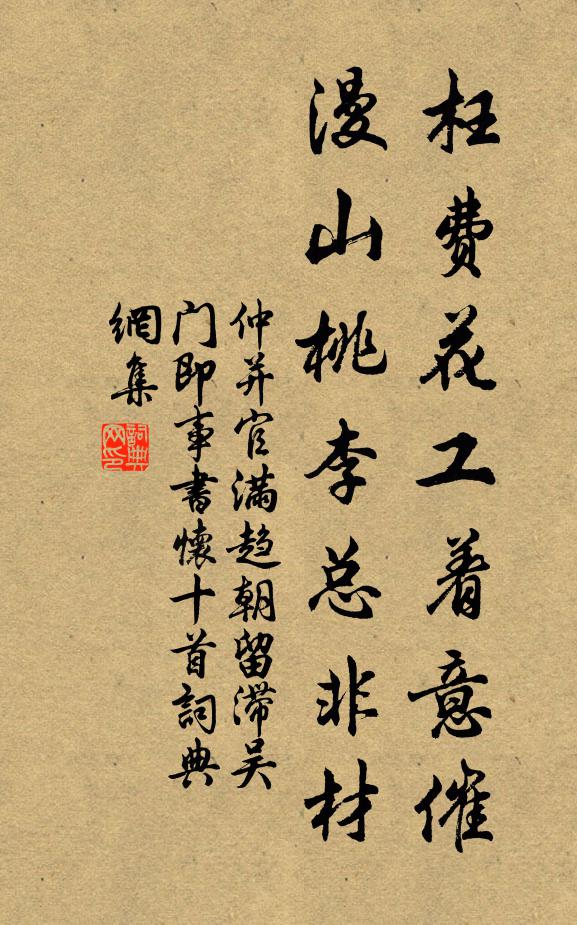 枉费花工着意催
漫山桃李总非材
仲并官满趋朝留滞吴
门即事书怀十首词典
網集
詞典
网印